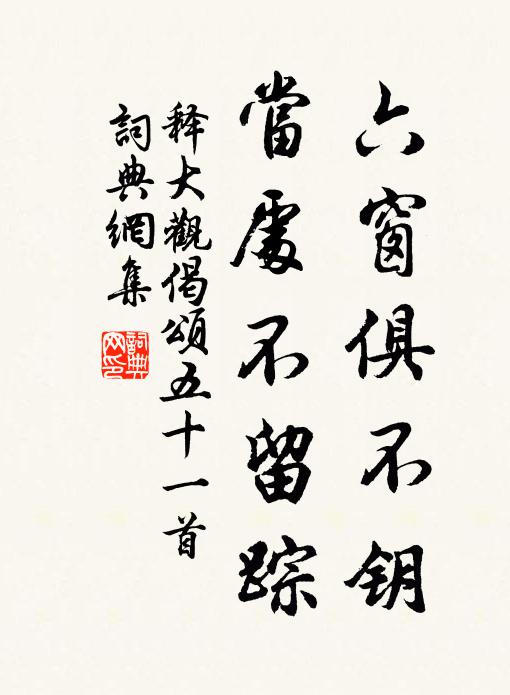 六窗俱不钥
當處不留踪
释大觀偈頌五十一首
詞典網集
詞典网印